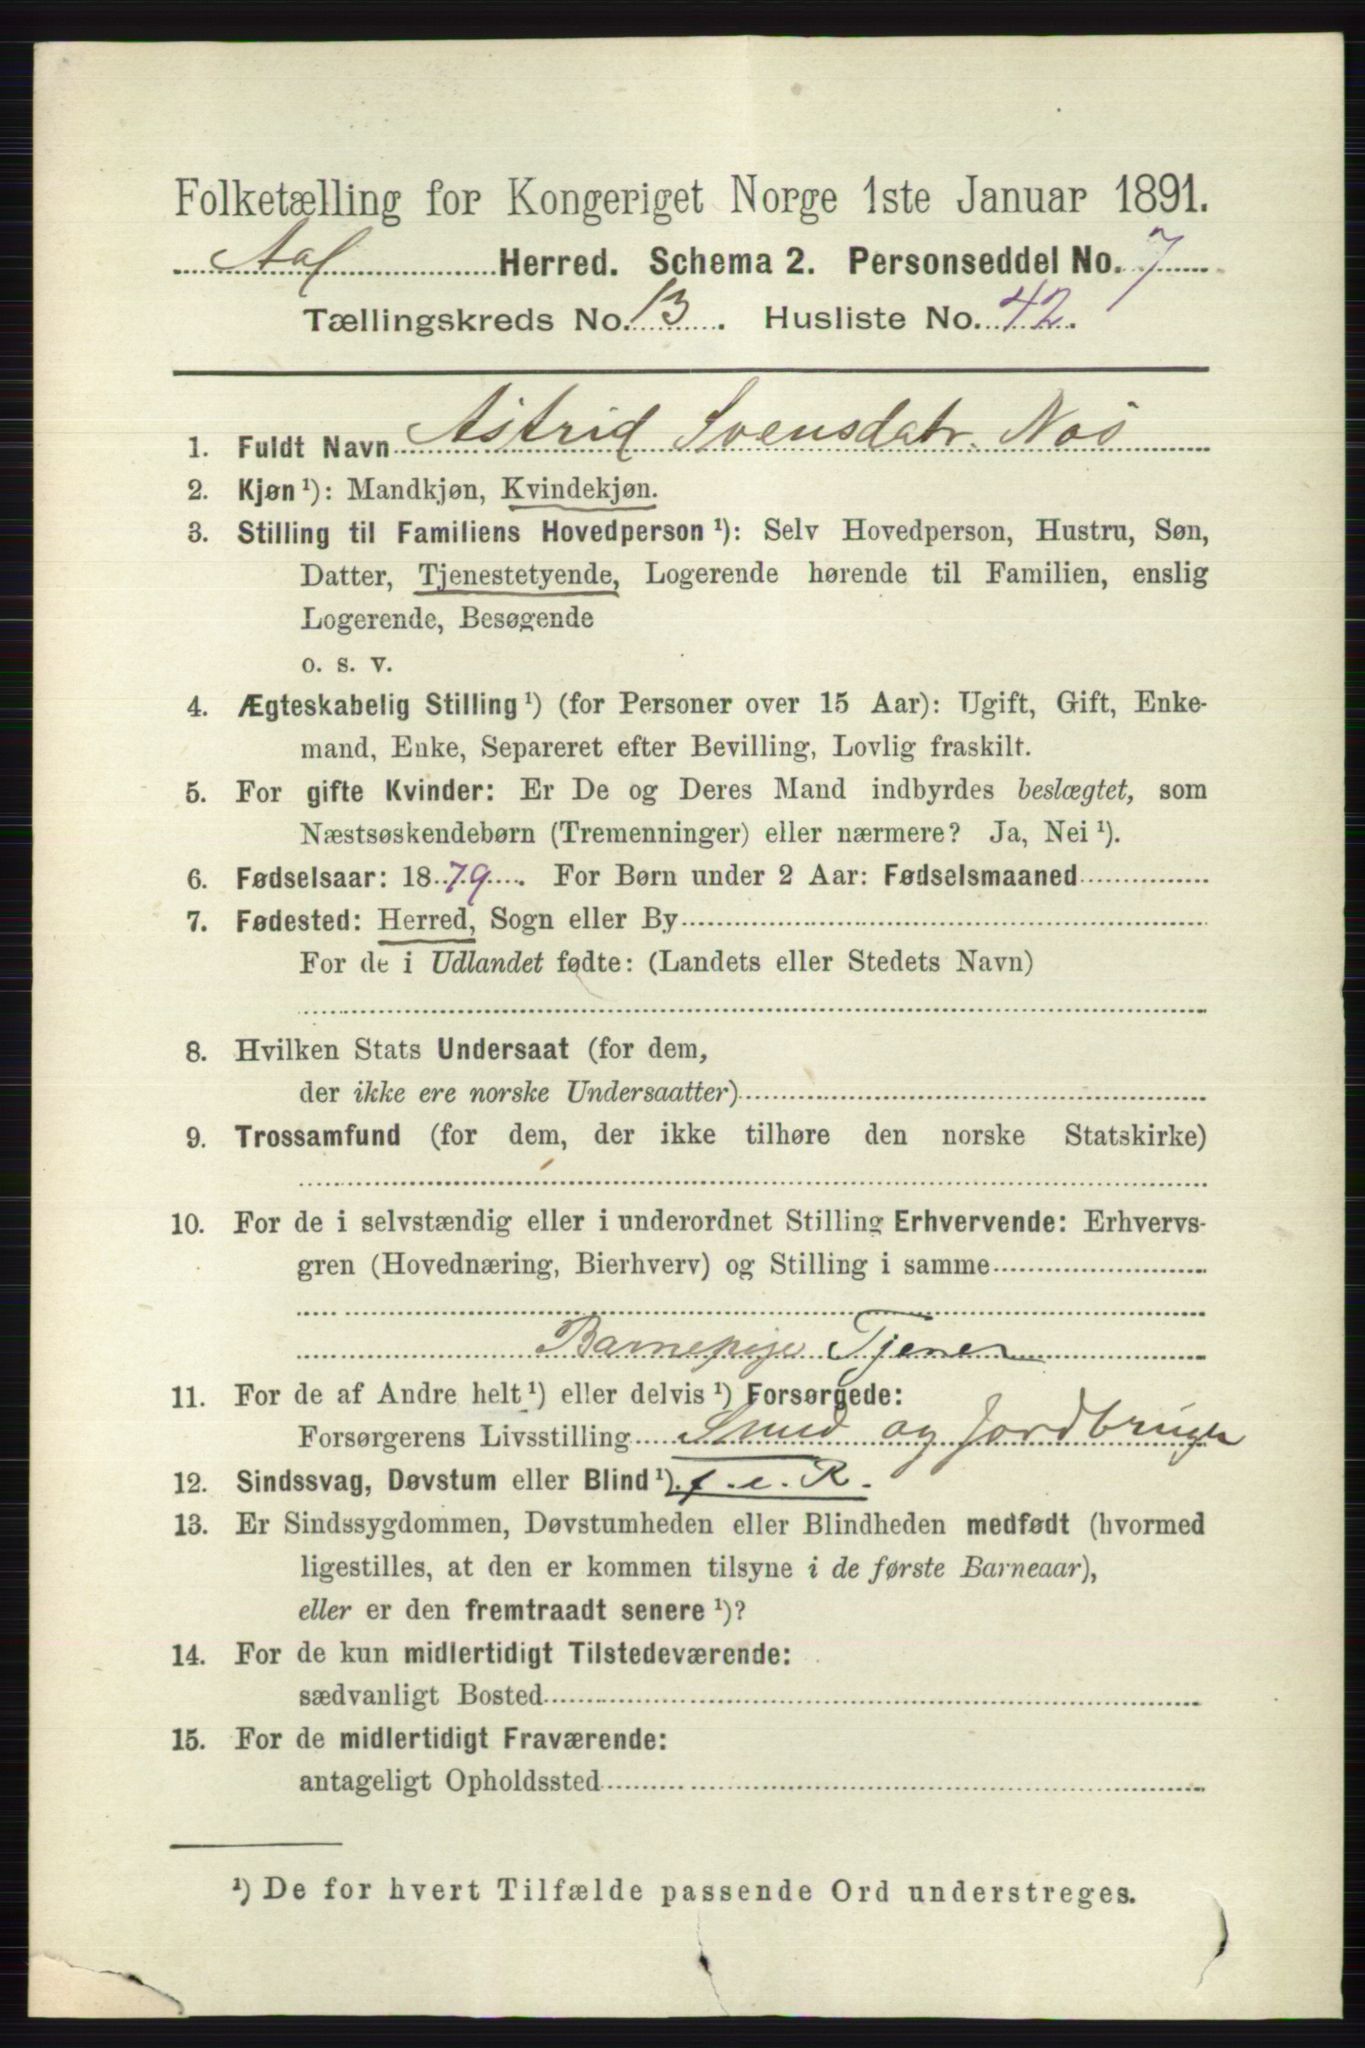 Folketælling for Kongeriget Norge 1ste Januar 1891.
Aal Herred. Schema 2. Personseddel No. 7
Tællingskreds No. 13. Husliste No. 42.
1. Fuldt Navn Astrid Svensdatr. Nos
2. Kjøn ¹): Mandkjøn, Kvindekjøn.
3. Stilling til Familiens Hovedperson ¹): Selv Hovedperson, Hustru, Søn,
Datter, Tjenestetyende, Logerende hørende til Familien, enslig
Logerende, Besøgende
o. s. v.
4. Ægteskabelig Stilling ¹) (for Personer over 15 Aar): Ugift, Gift, Enke-
mand, Enke, Separeret efter Bevilling, Lovlig fraskilt.
5. For gifte Kvinder: Er De og Deres Mand indbyrdes beslægtet, som
Næstsøskendebørn (Tremenninger) eller nærmere? Ja, Nei ¹).
6. Fødselsaar: 1879. For Børn under 2 Aar: Fødselsmaaned
7. Fødested: Herred, Sogn eller By
For de i Udlandet fødte: (Landets eller Stedets Navn)
8. Hvilken Stats Undersaat (for dem,
der ikke ere norske Undersaatter)
9. Trossamfund (for dem, der ikke tilhøre den norske Statskirke)
10. For de i selvstændig eller i underordnet Stilling Erhvervende: Erhvervs-
gren (Hovednæring, Bierhverv) og Stilling i samme
Barnepige Tjener
11. For de af Andre helt ¹) eller delvis ¹) Forsørgede:
Forsørgerens Livsstilling Smed og Jordbruger
12. Sindssvag, Døvstum eller Blind ¹). f. e. R.
13. Er Sindssygdommen, Døvstumheden eller Blindheden medfødt (hvormed
ligestilles, at den er kommen tilsyne i de første Barneaar),
eller er den fremtraadt senere ¹)?
14. For de kun midlertidigt Tilstedeværende:
sædvanligt Bosted
15. For de midlertidigt Fraværende:
antageligt Opholdssted
¹) De for hvert Tilfælde passende Ord understreges.